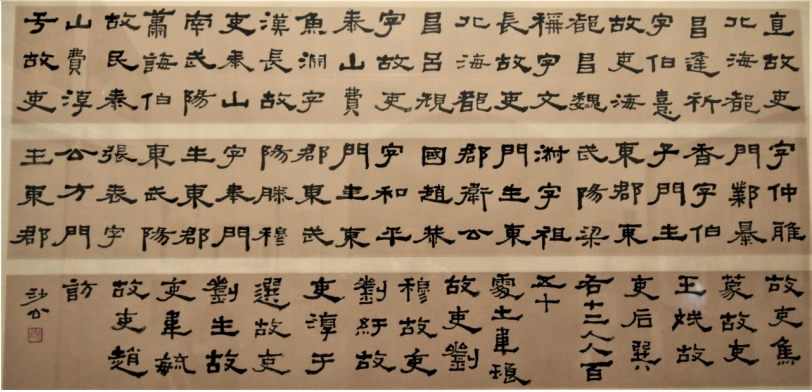 直故吏
北海都
昌逢祈
字伯憙
故吏海
都昌魏
稱字文
長故吏
北海都
昌呂規
字故吏
泰山費
魚淵字
漢長故
吏泰山
南武陽
蕭誨伯
故民泰
山費淳
于故吏
字仲雅
門鄴暴
香字伯
子門生
東郡東
武陽梁
淑字祖
門生東
郡衛公
國趙恭
字和平
門生東
郡東武
陽滕穆
字奉門
生東郡
東武陽
張表字
公方門
生東郡
故吏焦
蒙故吏
王故
吏后
名十二人人百
五十
處士車
故吏劉
穆故吏
劉紆故
吏淳于
選故吏
劉生故
吏車毓
故吏趙
訪